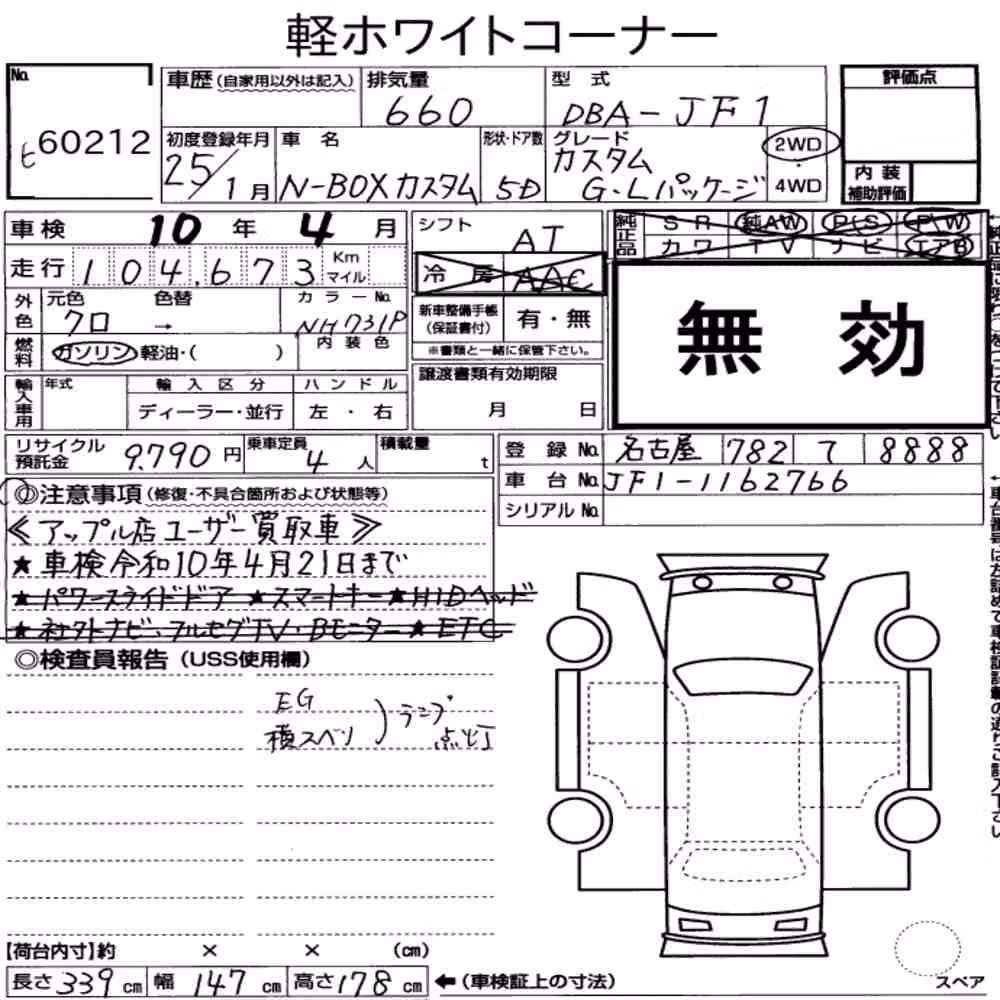 軽ホワイトコーナー
No.
ヒ60212
車歴(自家用以外は記入) 排気量 660 型式 DBA-JF1
初度登録年月 25/1月 車名 N-BOXカスタム 形状・ドア数 5D グレード カスタム G・Lパッケージ 2WD・4WD
評価点
内装補助評価
車検 10年 4月
走行 104,673 Km マイル
外色 元色 クロ 色替 → カラーNo. NH731P
燃料 ガソリン 軽油・( ) 内装色
輸入車用 年式 輸入区分 ハンドル
ディーラー・並行 左・右
リサイクル預託金 9,790円 乗車定員 4人 積載量 t
シフト AT
冷房 AAC
新車整備手帳(保証書付) 有・無
※書類と一緒に保管下さい。
譲渡書類有効期限
月 日
純正品 SR 純AW P(S) P(W)
カワ TV ナビ エアB
無効
登録No. 名古屋 782 ワ 8888
車台No. JF1-1162766
シリアルNo.
◎注意事項(修復・不具合箇所および状態等)
≪アップル店ユーザー買取車≫
★車検令和10年4月21日まで
★パワースライドドア ★スマートキー ★HIDヘッド
★社外ナビ・フルセグTV・Bモニター ★ETC
◎検査員報告(USS使用欄)
EG
横スベリ ) ランプ点灯
【荷台内寸】約 × × (cm)
長さ339cm 幅147cm 高さ178cm ←(車検証上の寸法)
スペア
←車台番号は左詰めで車検証記載の通りご記入下さい